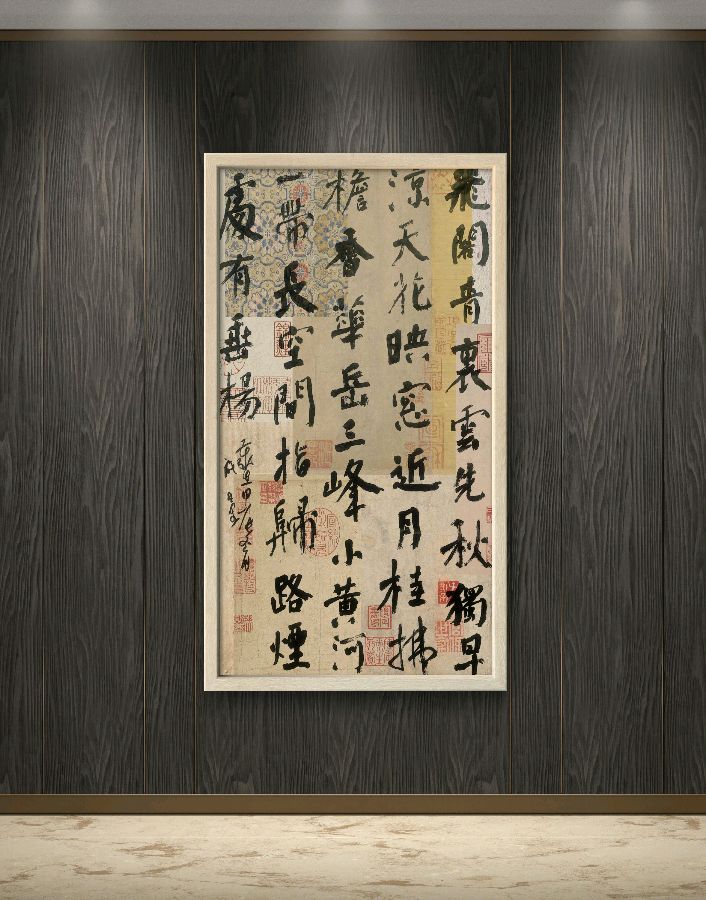 飛閣青裏雲先秋獨早
涼天花映窓近月桂拂
檐香華岳三峰小黃河
一帶長空間指歸路煙
處有垂楊